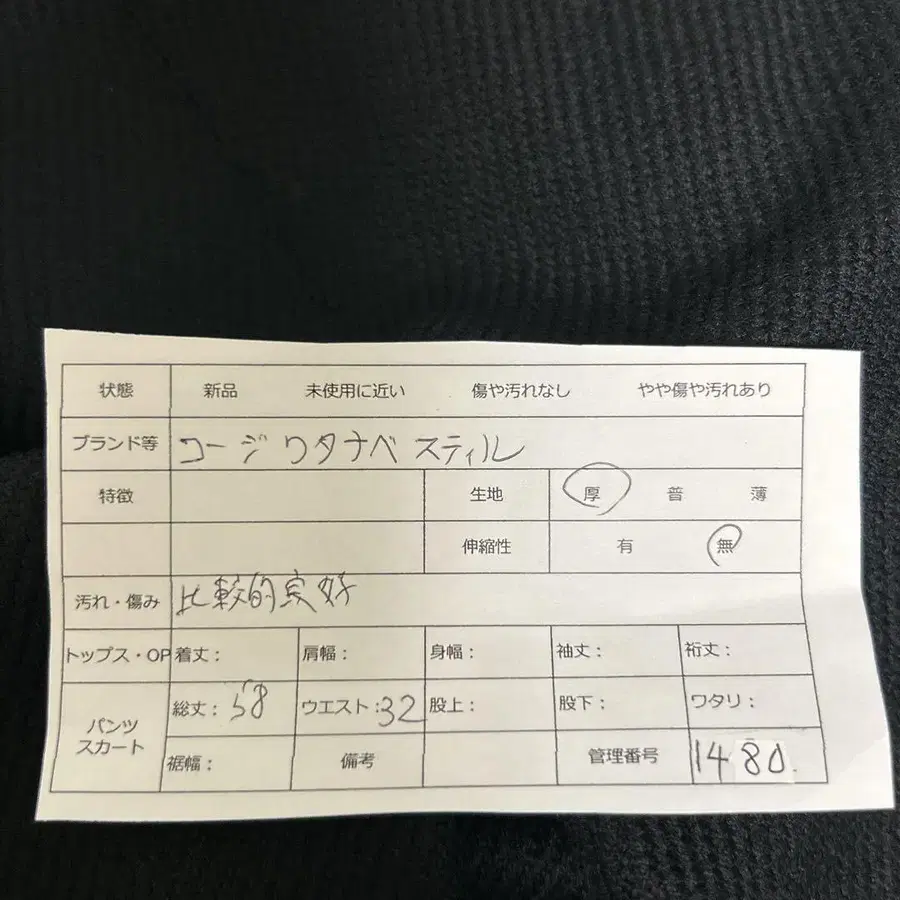 状態 新品 未使用に近い 傷や汚れなし やや傷や汚れあり
ブランド等 コージワタナベ スティル
特徴 生地 厚 普 薄
伸縮性 有 無
汚れ・傷み 比較的良好
トップス・OP 着丈: 肩幅: 身幅: 袖丈: 裄丈:
パンツ スカート 総丈:58 ウエスト:32 股上: 股下: ワタリ:
裾幅: 備考 管理番号 1480